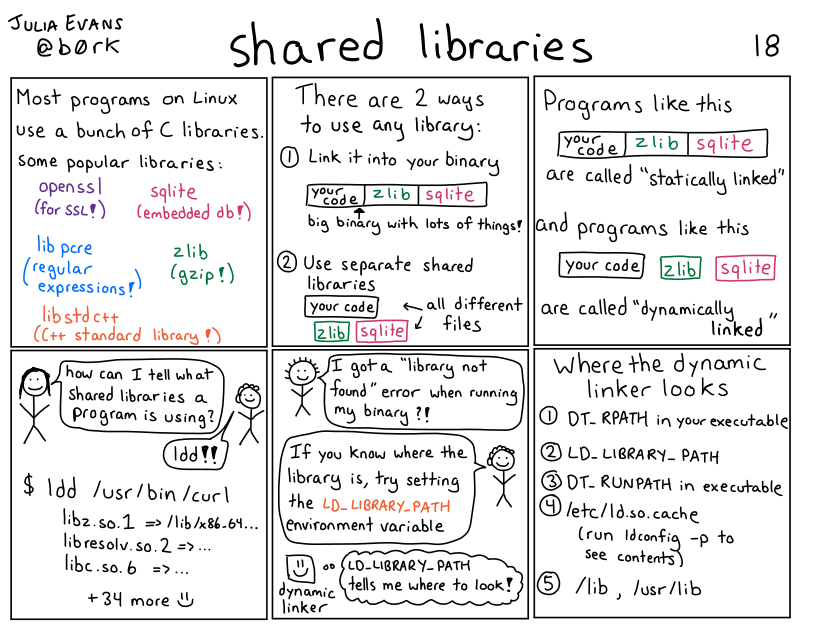 JULIA EVANS
@b0rk
shared libraries
18
Most programs on Linux
use a bunch of C libraries.
Some popular libraries:
openssl
(for SSL!)
sqlite
(embedded db!)
libpcre
(regular
expressions!)
zlib
(gzip!)
libstdc++
(C++ standard library!)
There are 2 ways
to use any library:
① Link it into your binary
your code zlib sqlite
big binary with lots of things!
② Use separate shared
libraries
your code
← all different
files
zlib sqlite
Programs like this
your code zlib sqlite
are called "statically linked"
and programs like this
your code zlib sqlite
are called "dynamically
linked"
how can I tell what
shared libraries a
program is using?
ldd!!
$ ldd /usr/bin/curl
libz.so.1 => /lib/x86-64...
libresolv.so.2 => ...
libc.so.6 => ...
+34 more
I got a "library not
found" error when running
my binary?!
If you know where the
library is, try setting
the LD_LIBRARY_PATH
environment variable
LD_LIBRARY_PATH
tells me where to look!
dynamic
linker
Where the dynamic
linker looks
① DT_RPATH in your executable
② LD_LIBRARY_PATH
③ DT_RUNPATH in executable
④ /etc/ld.so.cache
(run ldconfig -p to
see contents)
⑤ /lib, /usr/lib